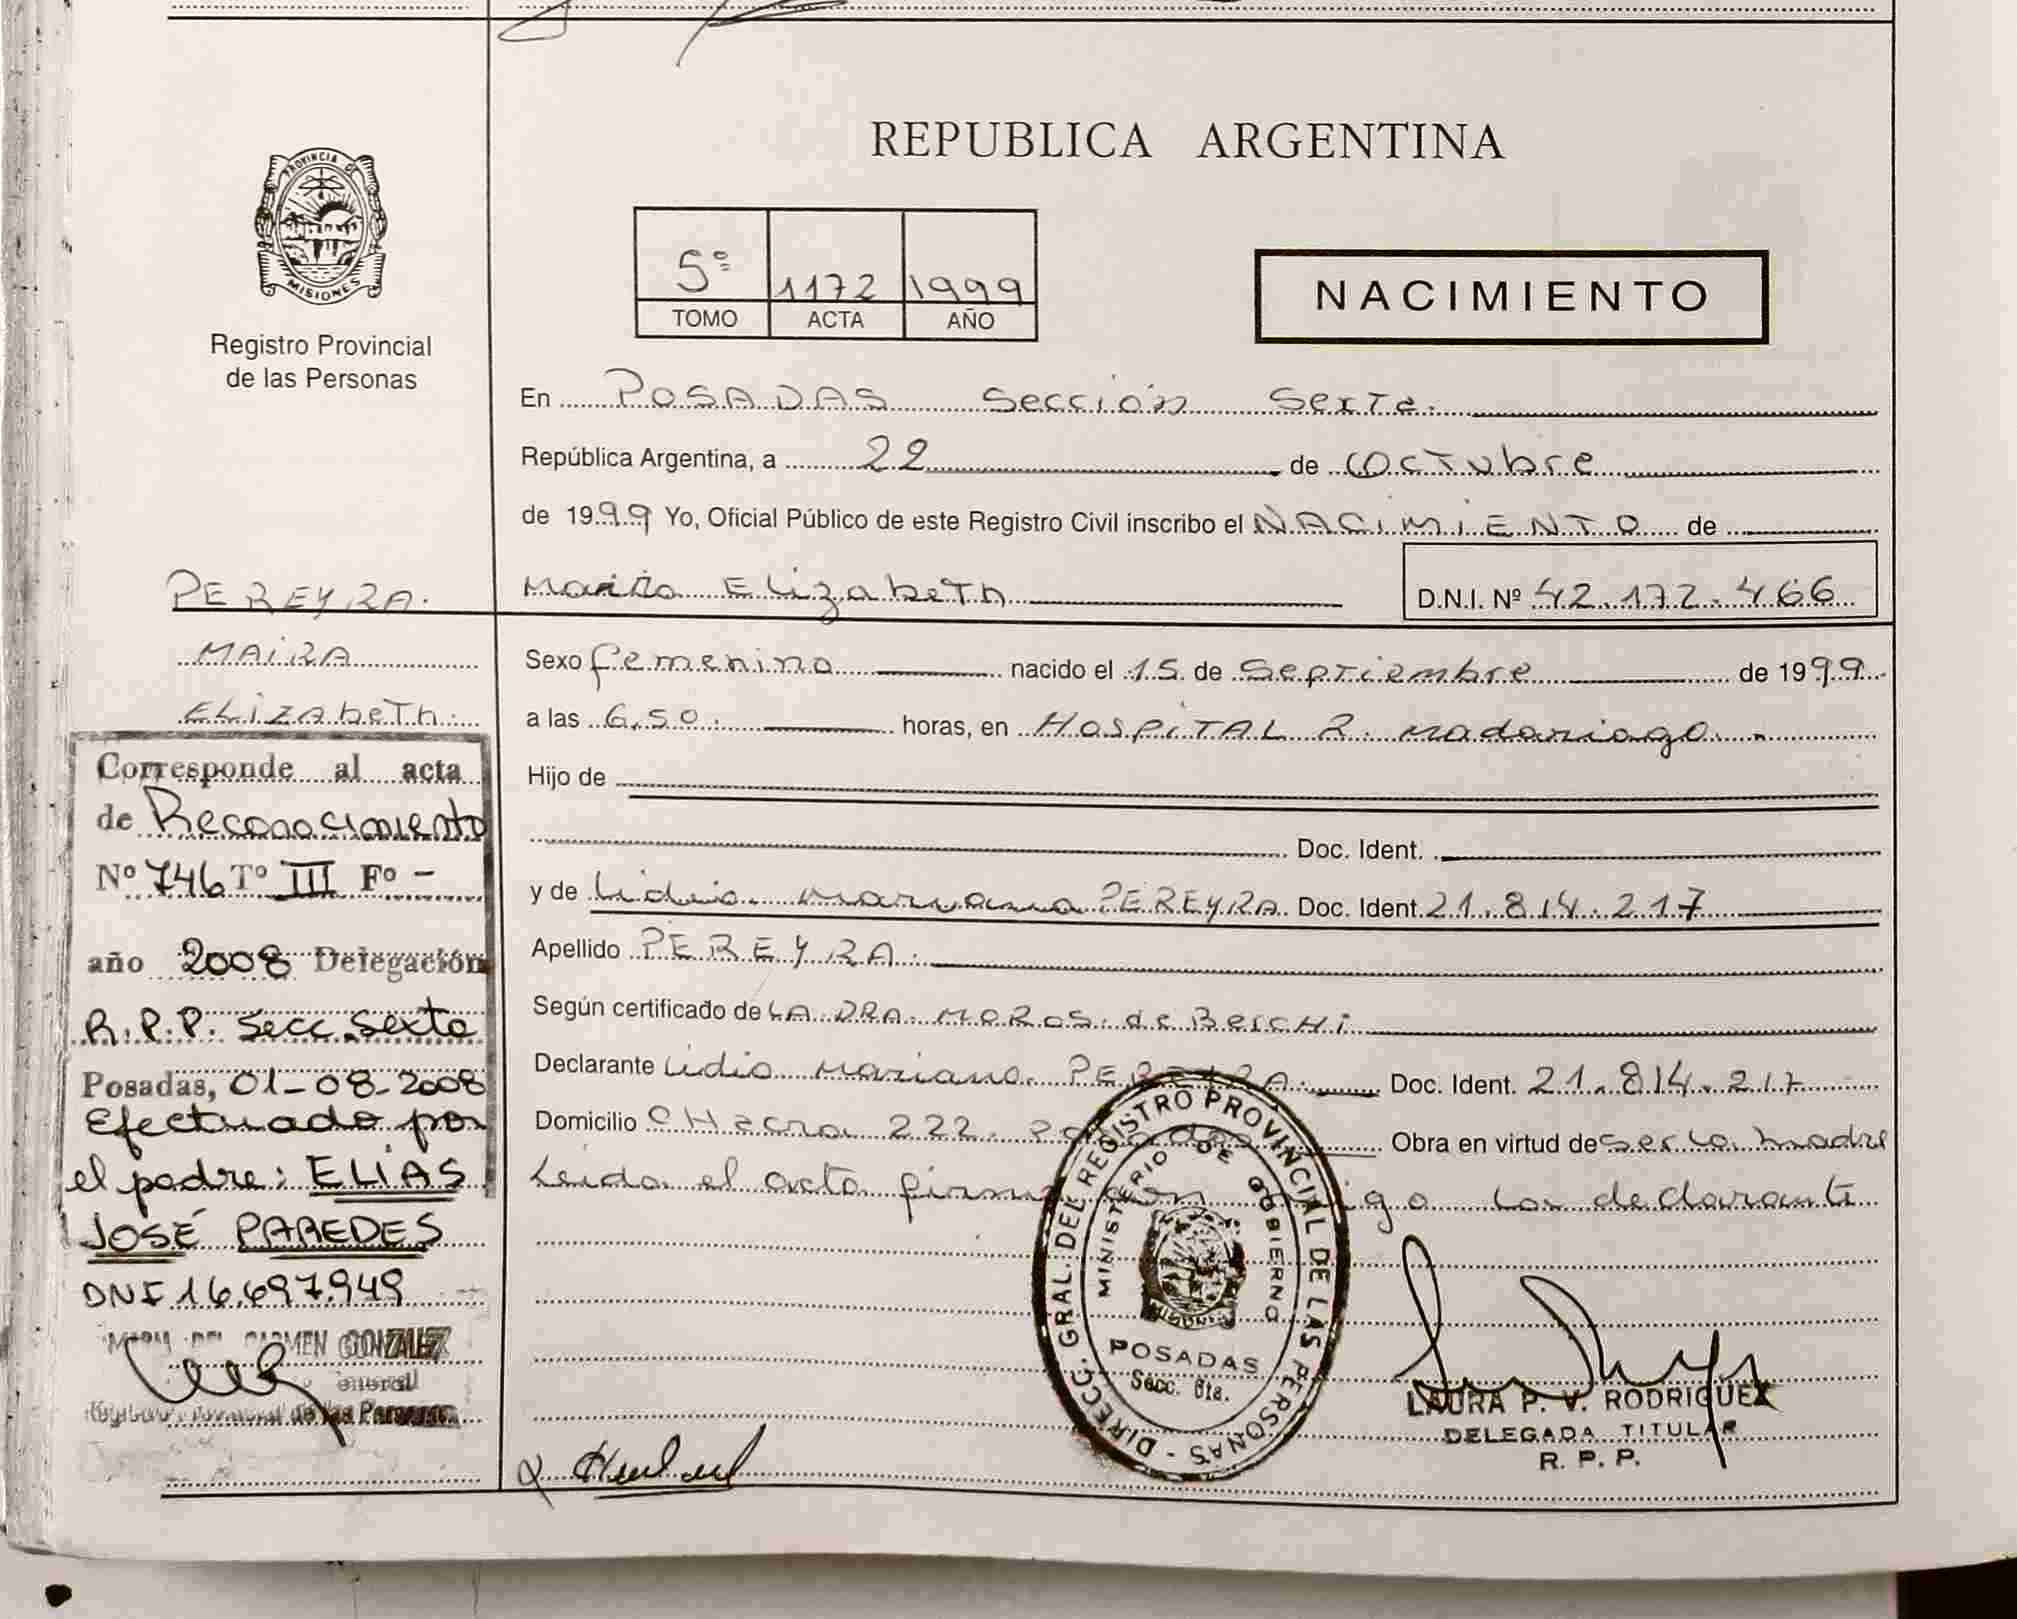 PROVINCIA DE
MISIONES
Registro Provincial
de las Personas
PEREYRA.
MAIRA
ELIZAbeTh.
Corresponde al acta
de Reconocimiento
Nº 746 Tº III Fº -
año 2008 Delegación
R.P.P. Secc. Sexta
Posadas, 01-08-2008
Efectuado por
el padre: ELIAS
JOSÉ PAREDES
DNI 16.697.949
DEL CARMEN GONZALEZ
de las Personas
REPUBLICA ARGENTINA
5º 1172 1999
TOMO ACTA AÑO
NACIMIENTO
En POSADAS Sección Sexta.
República Argentina, a 22 de Octubre
de 1999 Yo, Oficial Público de este Registro Civil inscribo el NACIMIENTO de
Maira Elizabeth D.N.I. Nº 42.172.466
Sexo femenino nacido el 15 de Septiembre de 1999
a las 6,50. horas, en HOSPITAL R. Madariaga.
Hijo de
Doc. Ident.
y de Lidia Mariana PEREYRA Doc. Ident. 21.814.217
Apellido PEREYRA.
Según certificado de LA DRA. MOROS de Berchi
Declarante Lidia Mariana PEREYRA. Doc. Ident. 21.814.217
Domicilio CHacra 222. Posadas Obra en virtud de ser la madre
Leida el acta firma con migo la declarante
DIRECC. GRAL. DEL REGISTRO PROVINCIAL DE LAS PERSONAS -
MINISTERIO DE GOBIERNO
POSADAS
Secc. 6ta.
LAURA P. V. RODRIGUEZ
DELEGADA TITULAR
R. P. P.